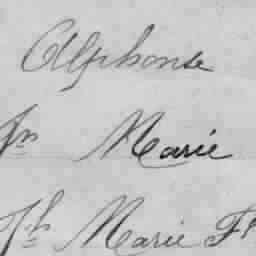 Alphonse
Jn Marie
Jh Marie Fs